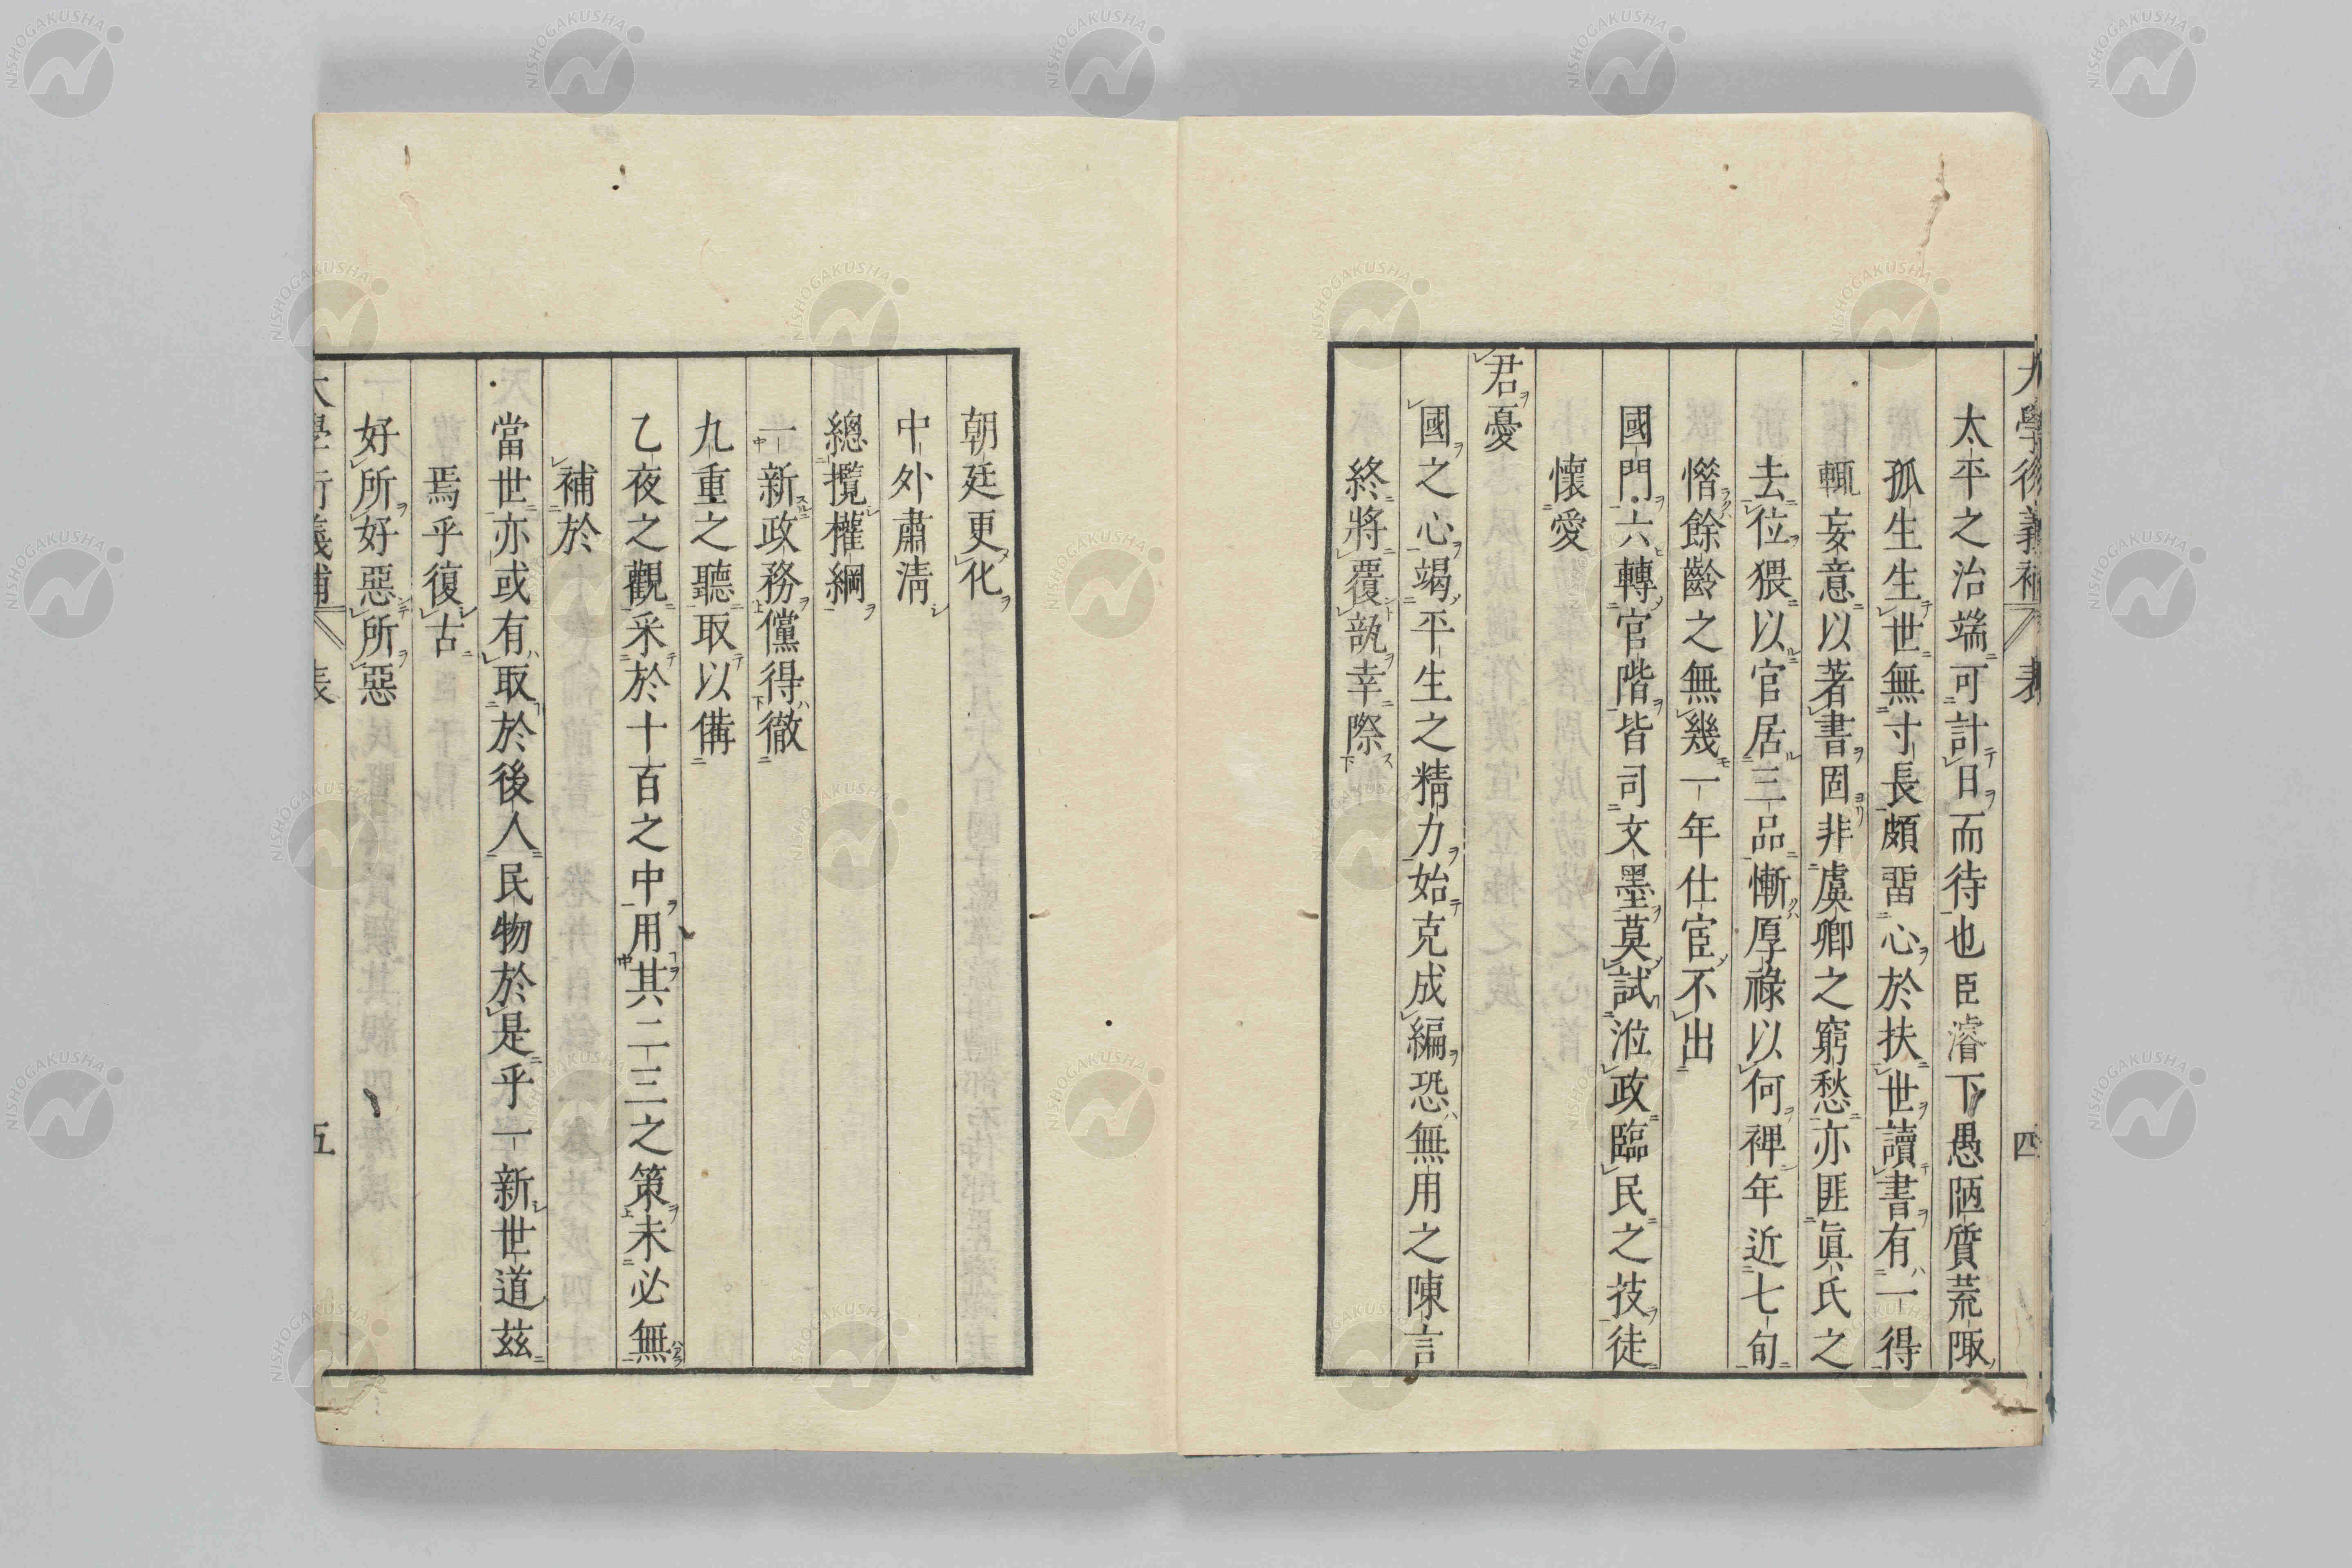 大學衍義補 表 四
太平之治端可計日而待也臣濬下愚陋質荒陬
孤生生世無寸長頗畱心於扶世讀書有一得
輒妄意以著書固非虞卿之窮愁亦匪眞氏之
去位猥以官居三品慚厚祿以何裨年近七旬
憯餘齡之無幾一年仕宦不出
國門六轉官階皆司文墨莫試涖政臨民之技徒
懷愛
君憂
國之心竭平生之精力始克成編恐無用之陳言
終將覆瓿幸際
朝廷更化
中外肅清
總攬權綱
一新政務儻得徹
九重之聽取以備
乙夜之觀采於十百之中用其二三之策未必無
補於
當世亦或有取於後人民物於是乎一新世道茲
焉乎復古
好所好惡所惡
大學衍義補 表 五